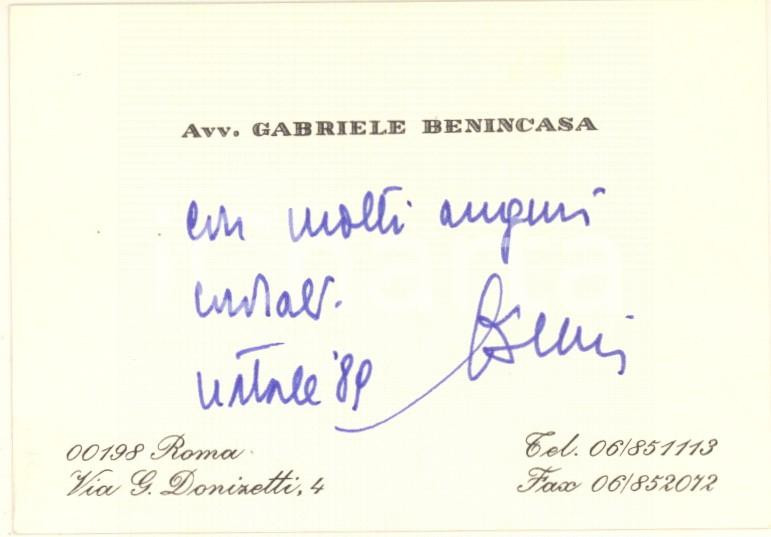 Avv. GABRIELE BENINCASA
con molti auguri
cordiali.
Natale '89
00198 Roma
Via G. Donizetti, 4
Tel. 06/851113
Fax 06/852072